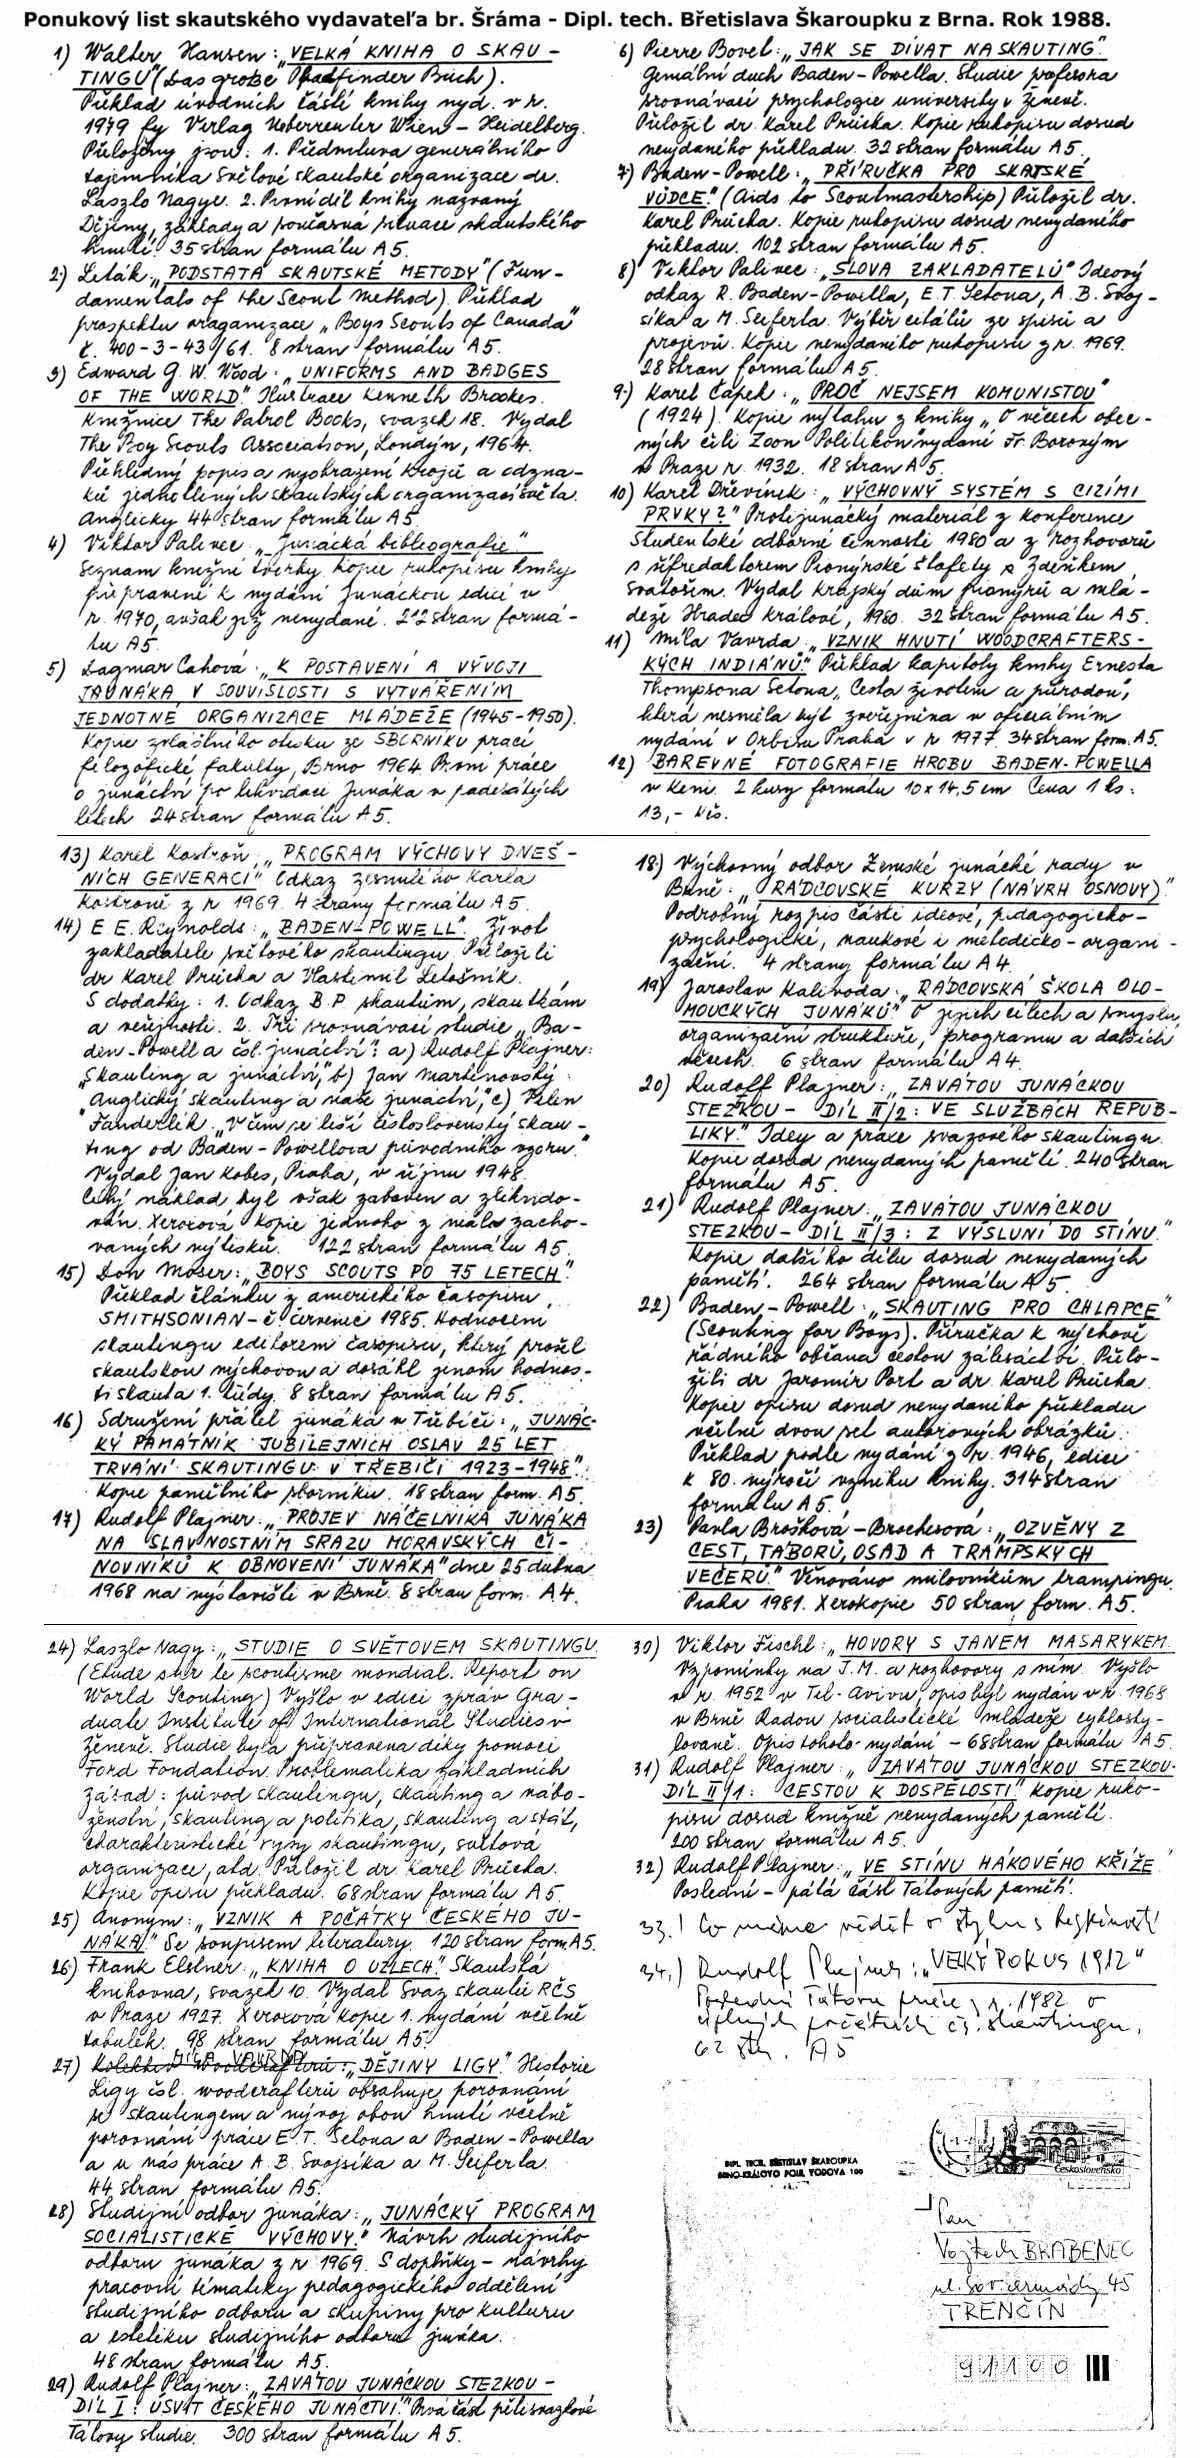 Ponukový list skautského vydavateľa br. Šráma - Dipl. tech. Břetislava Škaroupku z Brna. Rok 1988.
1) Walter Hansen: „VELKÁ KNIHA O SKAU-
TINGU" (Das große Pfadfinder Buch).
Překlad úvodních částí knihy vyd. v r.
1979 fy Verlag Ueberreuter Wien - Heidelberg.
Přeloženy jsou: 1. Předmluva generálního
tajemníka Světové skautské organizace dr.
Laszlo Nagye. 2. První díl knihy nazvaný
Dějiny, základy a současná situace skautského
hnutí. 35 stran formátu A5.
2) Leták: „PODSTATA SKAUTSKÉ METODY" (Fun-
damentals of the Scout Method). Překlad
prospektu oraganizace „Boys Scouts of Canada"
č. 400-3-43/61. 8 stran formátu A5.
3) Edward G. W. Wood: „UNIFORMS AND BADGES
OF THE WORLD." Ilustrace Kenneth Brookes.
Knižnice The Patrol Books, svazek 18. Vydal
The Boy Scouts Association, Londýn, 1964.
Přehledný popis a vyobrazení krojů a odzna-
ků jednotlivých skautských organizací světa.
Anglicky 44 stran formátu A5.
4) Viktor Palivec: „Junácká bibliografie"
Seznam knižní tvorby. Kopie rukopisu knihy
připravené k vydání Junáckou edicí v
r. 1970, avšak již nevydané. 212 stran formá-
tu A5.
5) Dagmar Cahová: „K POSTAVENÍ A VÝVOJI
JAUNÁKA V SOUVISLOSTI S VYTVÁŘENÍM
JEDNOTNÉ ORGANIZACE MLÁDEŽE (1945-1950).
Kopie zvláštního otisku ze SBORNÍKU prací
filozofické fakulty, Brno 1964. První práce
o junáctví po likvidaci Junáka v padesátých
letech 24 stran formátu A5.
6) Pierre Bovet: „JAK SE DÍVAT NA SKAUTING".
Geniální duch Baden-Powella. Studie profesora
srovnávací psychologie university v Ženevě.
Přeložil dr. Karel Průcha. Kopie rukopisu dosud
nevydaného překladu. 32 stran formátu A5.
7) Baden-Powell: „PŘÍRUČKA PRO SKATSKÉ
VŮDCE." (Aids to Scoutmastership) Přeložil dr.
Karel Průcha. Kopie rukopisu dosud nevydaného
překladu. 102 stran formátu A5.
8) Viktor Palivec: „SLOVA ZAKLADATELŮ" Ideový
odkaz R. Baden-Powella, E. T. Setona, A. B. Svoj-
síka a M. Seiferta. Výběr citátů ze spisů a
projevů. Kopie nevydaného rukopisu z r. 1969.
28 stran formátu A5.
9) Karel Čapek: „PROČ NEJSEM KOMUNISTOU"
(1924). Kopie výtahu z knihy „O věcech obec-
ných čili Zoon Politikon" vydané Fr. Borovým
v Praze r. 1932. 18 stran A5.
10) Karel Dřevínek: „VÝCHOVNÝ SYSTÉM S CIZÍMI
PRVKY?" Protijunácký materiál z konference
Studentské odborné činnosti 1980 a z rozhovorů
s šéfredaktorem Pionýrské štafety Zdeňkem
Svatošem. Vydal krajský dům pionýrů a mlá-
deže Hradec Králové, 1980. 32 stran formátu A5.
11) Míla Vavrda: „VZNIK HNUTÍ WOODCRAFTERS-
KÝCH INDIÁNŮ." Překlad kapitoly knihy Ernesta
Thompsona Setona „Cesta životem a přírodou",
která nesměla být zveřejněna v oficiálním
vydání v Orbisu Praha v r. 1977. 34 stran form. A5.
12) BAREVNÉ FOTOGRAFIE HROBU BADEN-POWELLA
v Keni. 2 kusy formátu 10 x 14,5 cm Cena 1 ks:
13,- Kčs.
13) Karel Kostroň: „PROGRAM VÝCHOVY DNEŠ-
NÍCH GENERACÍ" Odkaz zesnulého Karla
Kostroně z r. 1969. 4 strany formátu A5.
14) E. E. Reynolds: „BADEN-POWELL". Život
zakladatele světového skautingu. Přeložili
dr. Karel Průcha a Vlastimil Letošník.
S dodatky: 1. Odkaz B.P. skautům, skautkám
a veřejnosti. 2. Tři srovnávací studie „Ba-
den-Powell a čsl. junáctví": a) Rudolf Plajner:
„Skauting a junáctví," b) Jan Martinovský:
„Anglický skauting a naše junáctví," c) Velen
Fanderlik: „V čem se liší československý skau-
ting od Baden-Powellova původního vzoru."
Vydal Jan Kobes, Praha, v říjnu 1948.
Celý náklad byl však zabaven a zlikvido-
ván. Xeroxová kopie jednoho z mála zacho-
vaných výtisků. 122 stran formátu A5.
15) Don Moser: „BOYS SCOUTS PO 75 LETECH".
Překlad článku z amerického časopisu
SMITHSONIAN - č. červenec 1985. Hodnocení
skautingu editorem časopisu, který prošel
skautskou výchovou a dosáhl jinou hodnos-
ti skauta 1. třídy. 8 stran formátu A5.
16) Sdružení přátel junáka v Třebíči: „JUNÁC-
KÝ PAMÁTNÍK JUBILEJNÍCH OSLAV 25 LET
TRVÁNÍ SKAUTINGU V TŘEBÍČI 1923-1948".
Kopie pamětního sborníku. 18 stran form. A5.
17) Rudolf Plajner: „PROJEV NÁČELNÍKA JUNÁKA
NA SLAVNOSTNÍM SRAZU MORAVSKÝCH ČI-
NOVNÍKŮ K OBNOVENÍ JUNÁKA" dne 25 dubna
1968 na výstavišti v Brně. 8 stran form. A4.
18) Výchovný odbor Zemské junácké rady v
Brně: „RÁDCOVSKÉ KURZY (NÁVRH OSNOVY)."
Podrobný rozpis části ideové, pedagogicko-
psychologické, naukové i metodicko-organi-
zační. 4 strany formátu A4.
19) Jaroslav Kalivoda: „RÁDCOVSKÁ ŠKOLA OLO-
MOUCKÝCH JUNÁKŮ" O jejích cílech a smyslu,
organizační struktuře, programu a dalších
věcech. 6 stran formátu A4.
20) Rudolf Plajner: „ZAVÁTOU JUNÁCKOU
STEZKOU - DÍL II/2: VE SLUŽBÁCH REPUB-
LIKY." Idey a práce svazového skautingu.
Kopie dosud nevydaných pamětí. 240 stran
formátu A5.
21) Rudolf Plajner: „ZAVÁTOU JUNÁCKOU
STEZKOU - DÍL II/3: Z VÝSLUNÍ DO STÍNU."
Kopie dalšího dílu dosud nevydaných
pamětí. 264 stran formátu A5.
22) Baden-Powell: „SKAUTING PRO CHLAPCE"
(Scouting for Boys). Příručka k výchově
řádného občana cestou zálesáctví. Přelo-
žili dr. Jaromír Port a dr. Karel Průcha.
Kopie opisu dosud nevydaného překladu
včetně dvou set autorových obrázků.
Překlad podle vydání z r. 1946, edice
k 80. výročí vzniku knihy. 314 stran
formátu A5.
23) Pavla Brošková-Brocherová: „OZVĚNY Z
CEST, TÁBORŮ, OSAD A TRAMPSKÝCH
VEČERŮ." Věnováno milovníkům trampingu.
Praha 1981. Xerokopie 50 stran form. A5.
24) Laszlo Nagy: „STUDIE O SVĚTOVÉM SKAUTINGU.
(Etude sur le scoutisme mondial. Report on
World Scouting) Vyšlo v edici zpráv Gra-
duate Institute of International Studies v
Ženevě. Studie byla připravena díky pomoci
Ford Fondation. Problematika základních
zásad: původ skautingu, skauting a nábo-
ženství, skauting a politika, skauting a stát,
charakteristické rysy skautingu, světová
organizace, atd. Přeložil dr. Karel Průcha.
Kopie opisu překladu. 68 stran formátu A5.
25) Anonym: „VZNIK A POČÁTKY ČESKÉHO JU-
NÁKA." Se soupisem literatury. 120 stran form. A5.
26) Frank Elstner: „KNIHA O UZLECH". Skautská
knihovna, svazek 10. Vydal Svaz skautů RČS
v Praze 1927. Xeroxová kopie 1. vydání včetně
tabulek. 98 stran formátu A5.
MÍLA VAVRDA
27) Kolektiv woodcrafterů: „DĚJINY LIGY." Historie
Ligy čsl. woodcrafterů obsahuje porovnání
se skautingem a vývoj obou hnutí včetně
porovnání práce E. T. Setona a Baden-Powella
a u nás práce A. B. Svojsíka a M. Seiferta.
44 stran formátu A5.
28) Studijní odbor junáka: „JUNÁCKÝ PROGRAM
SOCIALISTICKÉ VÝCHOVY." Návrh studijního
odboru junáka z r. 1969. S doplňky - návrhy
pracovní tématiky pedagogického oddělení
studijního odboru a skupiny pro kulturu
a estetiku studijního odboru junáka.
48 stran formátu A5.
29) Rudolf Plajner: „ZAVÁTOU JUNÁCKOU STEZKOU -
DÍL I: ÚSVIT ČESKÉHO JUNÁCTVÍ." Prvá část pětisvazkové
Tátovy studie. 300 stran formátu A5.
30) Viktor Fischl: „HOVORY S JANEM MASARYKEM.
Vzpomínky na J. M. a rozhovory s ním. Vyšlo
v r. 1952 v Tel-Avivu, opis byl vydán v r. 1968
v Brně Radou socialistické mládeže cyklosty-
lovaně. Opis tohoto vydání - 68 stran formátu A5.
31) Rudolf Plajner: „ZAVÁTOU JUNÁCKOU STEZKOU-
DÍL II/1: CESTOU K DOSPĚLOSTI" Kopie ruko-
pisu dosud knižně nevydaných pamětí.
200 stran formátu A5.
32) Rudolf Plajner: „VE STÍNU HÁKOVÉHO KŘÍŽE"
Poslední - pátá část Tátových pamětí.
33.) Co máme vědět o styku s
34.) Rudolf Plajner: „VELKÝ POKUS 1912"
Poslední Tátova práce z r. 1982 o
úplných počátcích čs. skautingu.
62 str. A5
DIPL. TECH. BŘETISLAV ŠKAROUPKA
BRNO-KRÁLOVO POLE, VODOVA 100
Československo
Pan
Vojtech BRABENEC
ul. Sov. armády 45
TRENČÍN
91100